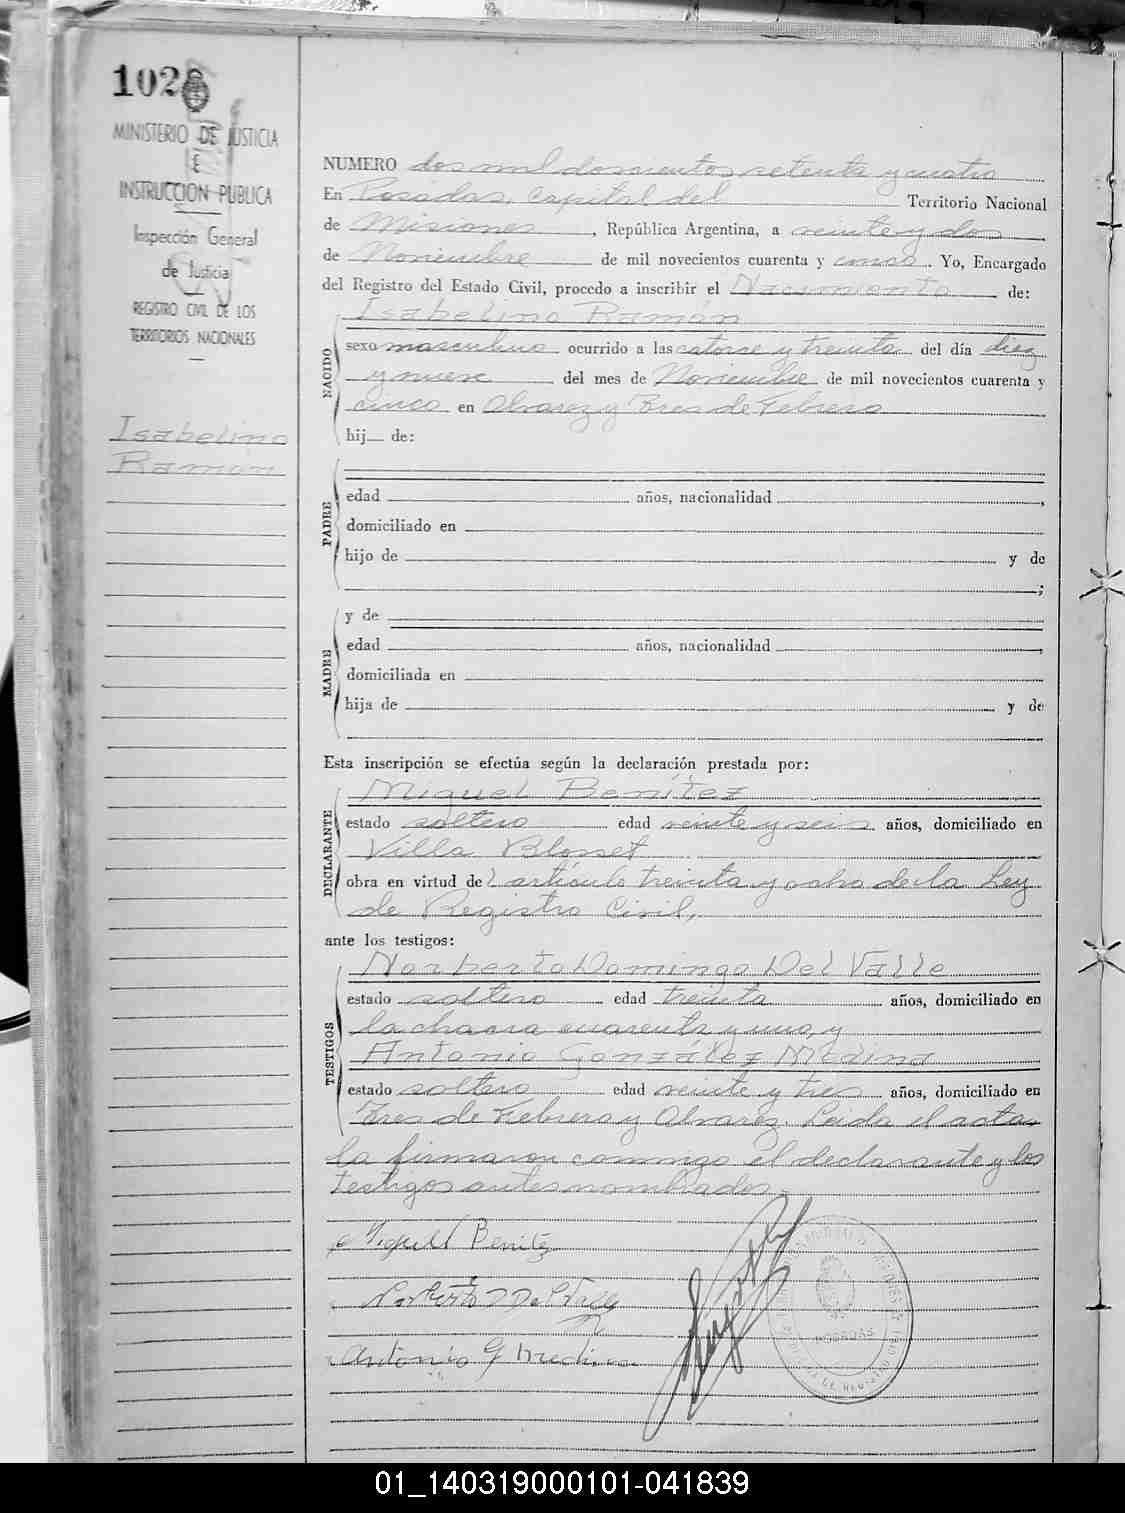 102
MINISTERIO DE JUSTICIA
E
INSTRUCCION PUBLICA
Inspección General
de Justicia
REGISTRO CIVIL DE LOS
TERRITORIOS NACIONALES
Isabelino
Ramón
NUMERO dos mil doscientos setenta y cuatro
En Posadas, capital del Territorio Nacional
de Misiones, República Argentina, a veinte y dos
de Noviembre de mil novecientos cuarenta y cinco. Yo, Encargado
del Registro del Estado Civil, procedo a inscribir el Nacimiento de:
NACIDO
Isabelino Ramón
sexo masculino ocurrido a las catorce y treinta del día diez
y nueve del mes de Noviembre de mil novecientos cuarenta y
cinco en Alvarez y Tres de Febrero
hij de:
PADRE
edad años, nacionalidad ,
domiciliado en
hijo de y de
;
MADRE
y de
edad años, nacionalidad ,
domiciliada en
hija de y de
Esta inscripción se efectúa según la declaración prestada por:
DECLARANTE
Miguel Benítez
estado soltero edad veinte y seis años, domiciliado en
Villa Blosset
obra en virtud del artículo treinta y ocho de la Ley
de Registro Civil,
ante los testigos:
TESTIGOS
Norberto Domingo Del Valle
estado soltero edad treinta años, domiciliado en
la chacra cuarenta y uno, y
Antonio González Medina
estado soltero edad veinte y tres años, domiciliado en
Tres de Febrero y Alvarez. Leida el acta,
la firmaron conmigo el declarante y los
testigos antes nombrados.
Miguel Benitez
Norberto D Del Valle
Antonio G Medina
POSADAS
01_140319000101-041839